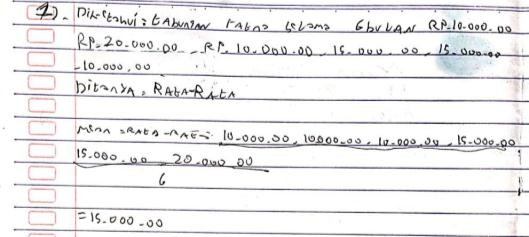 2). Diketahui : tabungan ratna selama 6 bulan RP.10.000.00
RP.20.000.00 - RP. 10.000.00 . 15.000.00 . 15.000.00
-10.000,00
Ditanya : RATA-RATA
Mean = RATA-RATA = 10.000.00, 10.000.00, 10.000.00, 15.000.00
15.000.00 20.000.00
6
= 15.000.00